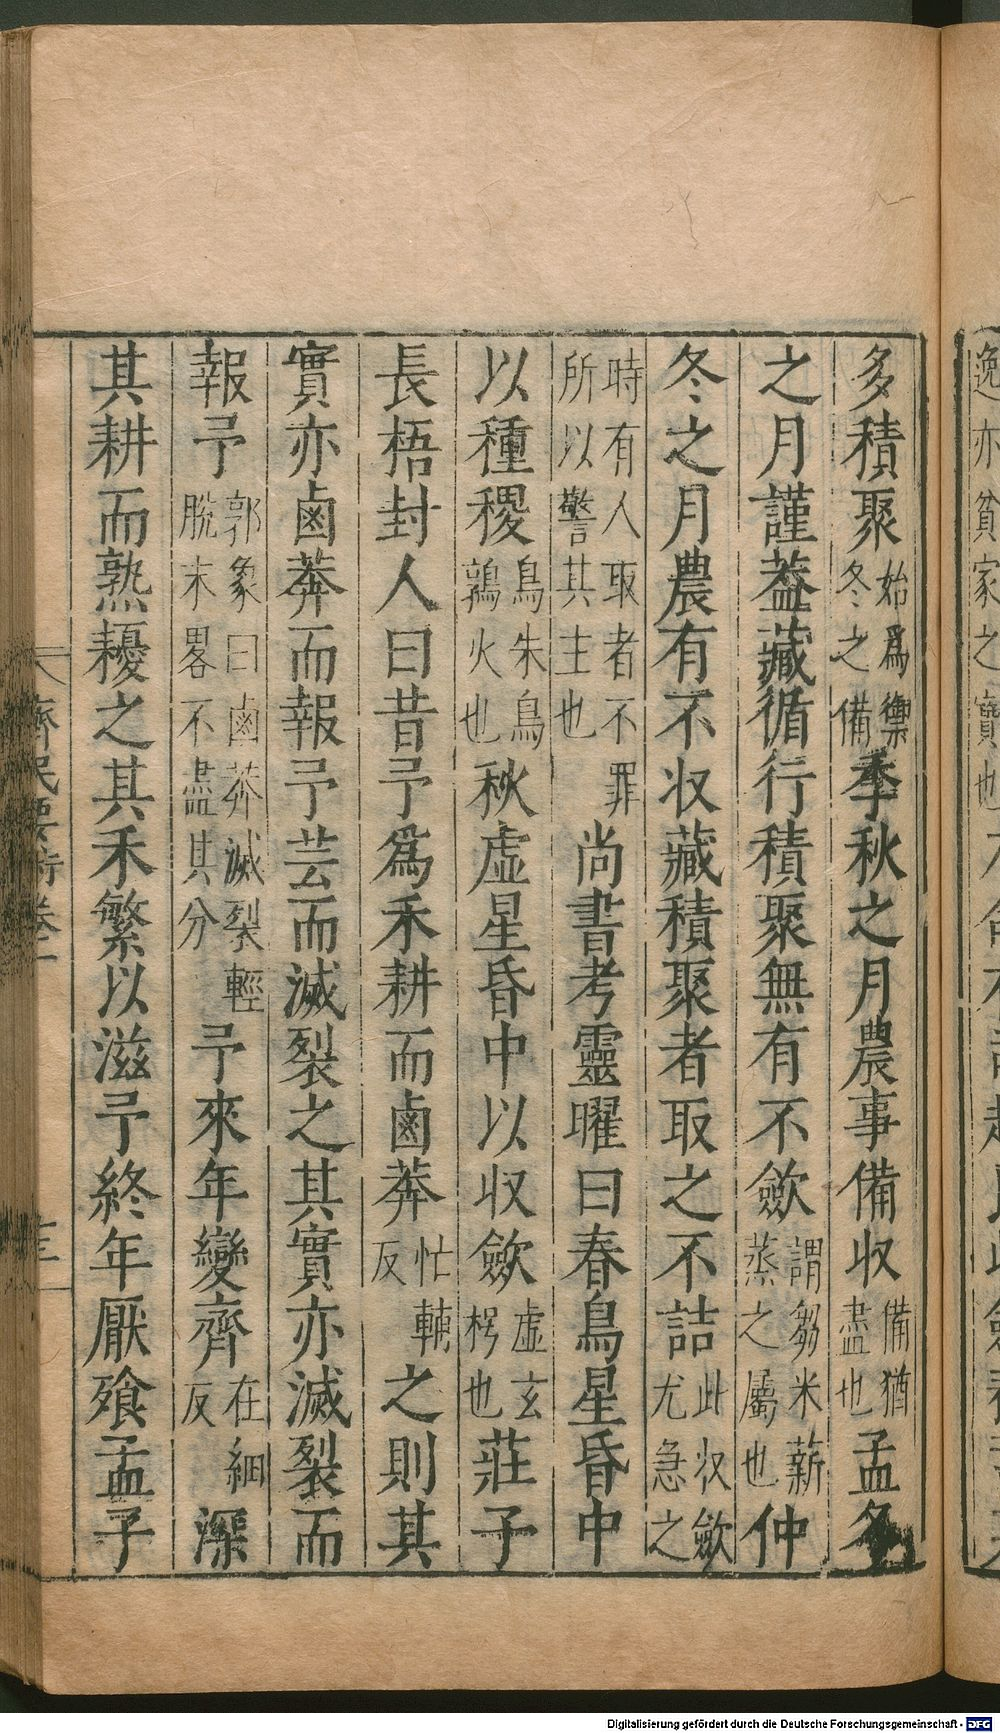 多積聚始爲禦冬之備季秋之月農事備收備猶盡也孟冬
之月謹葢藏循行積聚無有不斂謂芻米薪蒸之屬也仲
冬之月農有不收藏積聚者取之不詰此收斂尤急之
時有人取者不罪所以警其主也尚書考靈曜曰春鳥星昏中
以種稷鳥朱鳥鶉火也秋虛星昏中以收斂虛玄枵也莊子
長梧封人曰昔予爲禾耕而鹵莽忙輔反之則其
實亦鹵莽而報予芸而滅裂之其實亦滅裂而
報予郭象曰鹵莽滅裂輕脫末畧不盡其分予來年變齊在細反深
其耕而熟耰之其禾繁以滋予終年厭飱孟子
齊民要術卷一
逸亦貧家之寶也
Digitalisierung gefördert durch die Deutsche Forschungsgemeinschaft - DFG